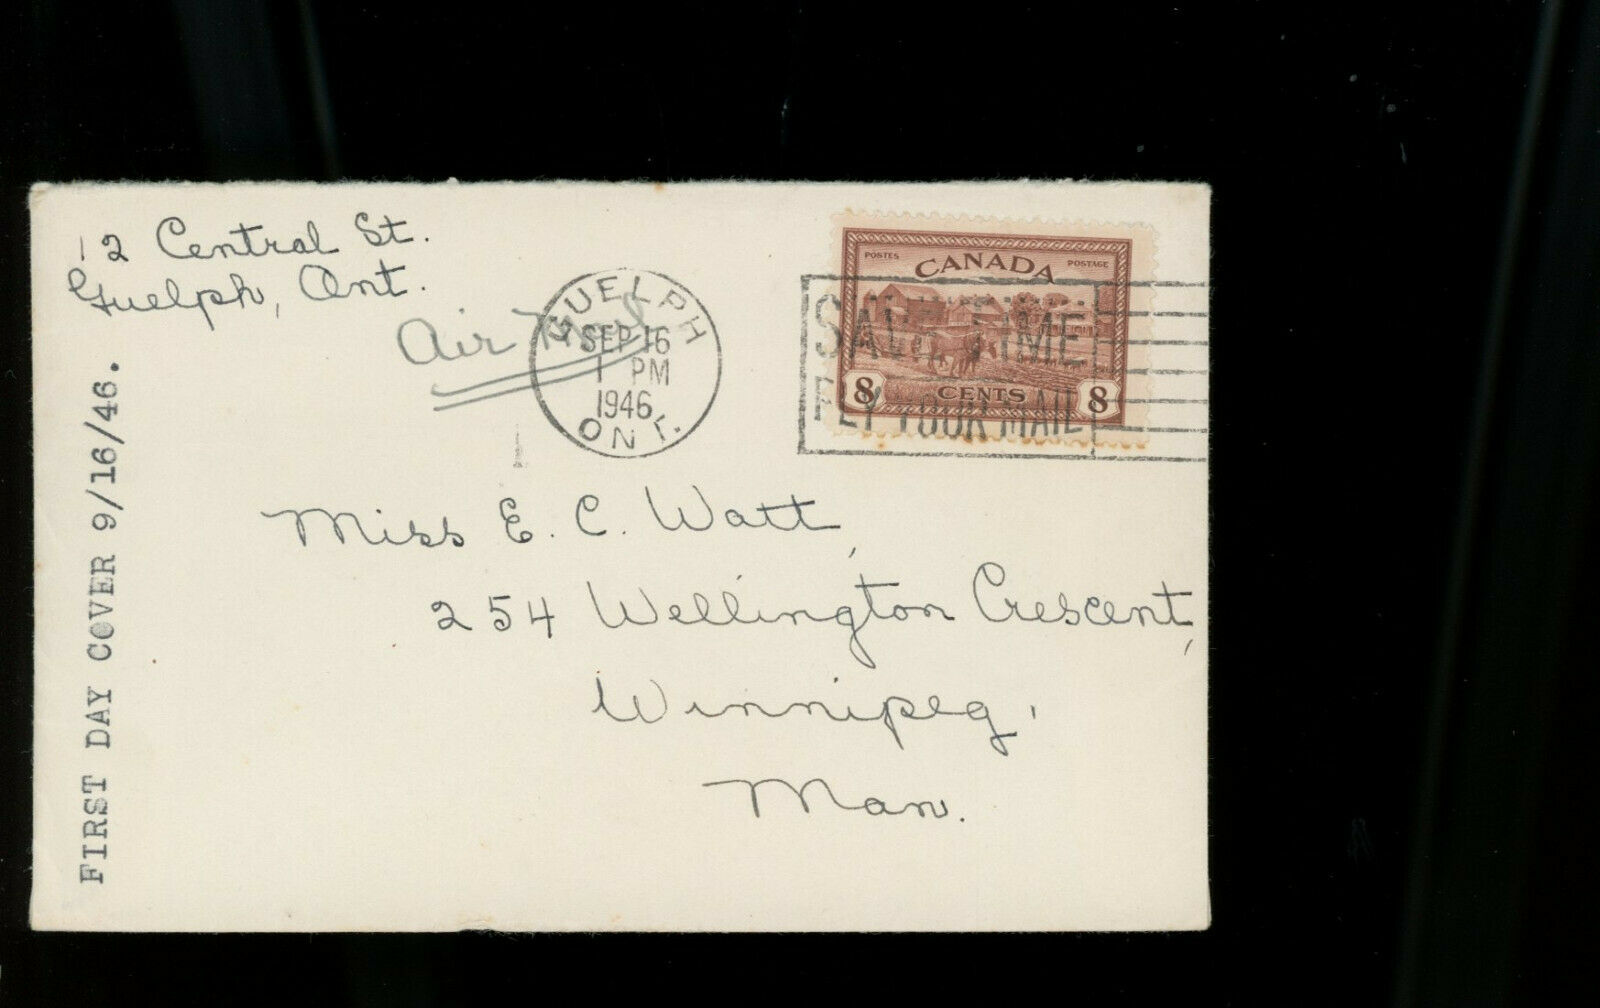 12 Central St.
Guelph, Ont.
Air Mail
GUELPH
SEP 16
1 PM
1946
ONT.
POSTES CANADA POSTAGE
8 CENTS 8
SAVE TIME
FLY YOUR MAIL
Miss E. C. Watt,
254 Wellington Crescent,
Winnipeg,
Man.
FIRST DAY COVER 9/16/46.